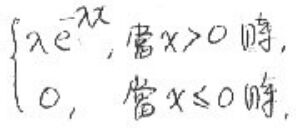 λe^{-λx}, 當x>0時,
0, 當x≤0時.